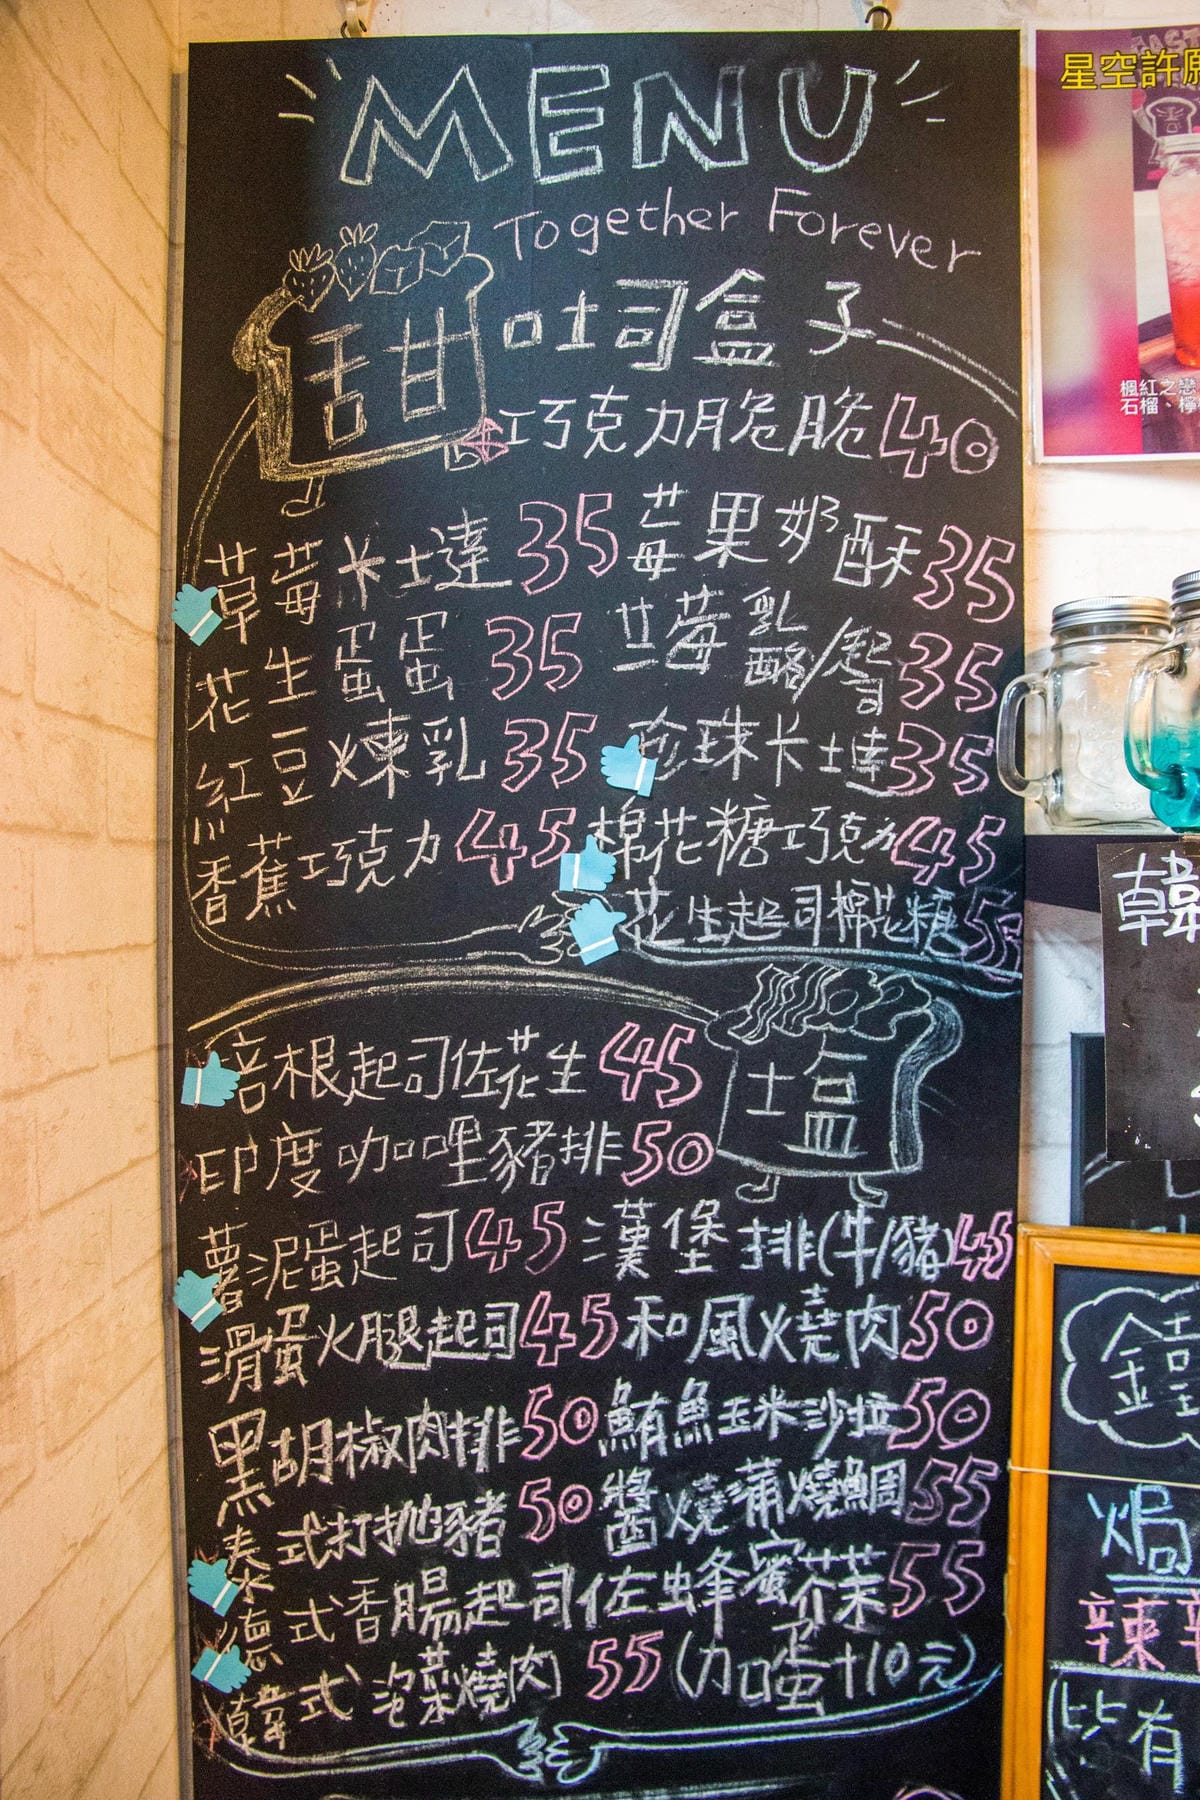 MENU
Together Forever
甜 吐司盒子
巧克力脆脆 40
草莓卡士達 35 芒果奶酥 35
花生蛋蛋 35 莓乳酪/起司 35
紅豆煉乳 35 珍珠卡士達 35
香蕉巧克力 45 棉花糖巧克力 45
花生起司棉花糖
土盒
培根起司佐花生 45
印度咖哩豬排 50
薯泥蛋起司 45 漢堡排(牛/豬) 45
滑蛋火腿起司 45 和風燒肉 50
黑胡椒肉排 50 鮪魚玉米沙拉 50
式打拋豬 50 醬燒蒲燒鯛 55
德式香腸起司佐蜂蜜芥茉 55
韓式泡菜燒肉 55 (加蛋+10元)
星空許願
楓紅之戀
石榴、檸
韓
鐘
焗
辣
皆有